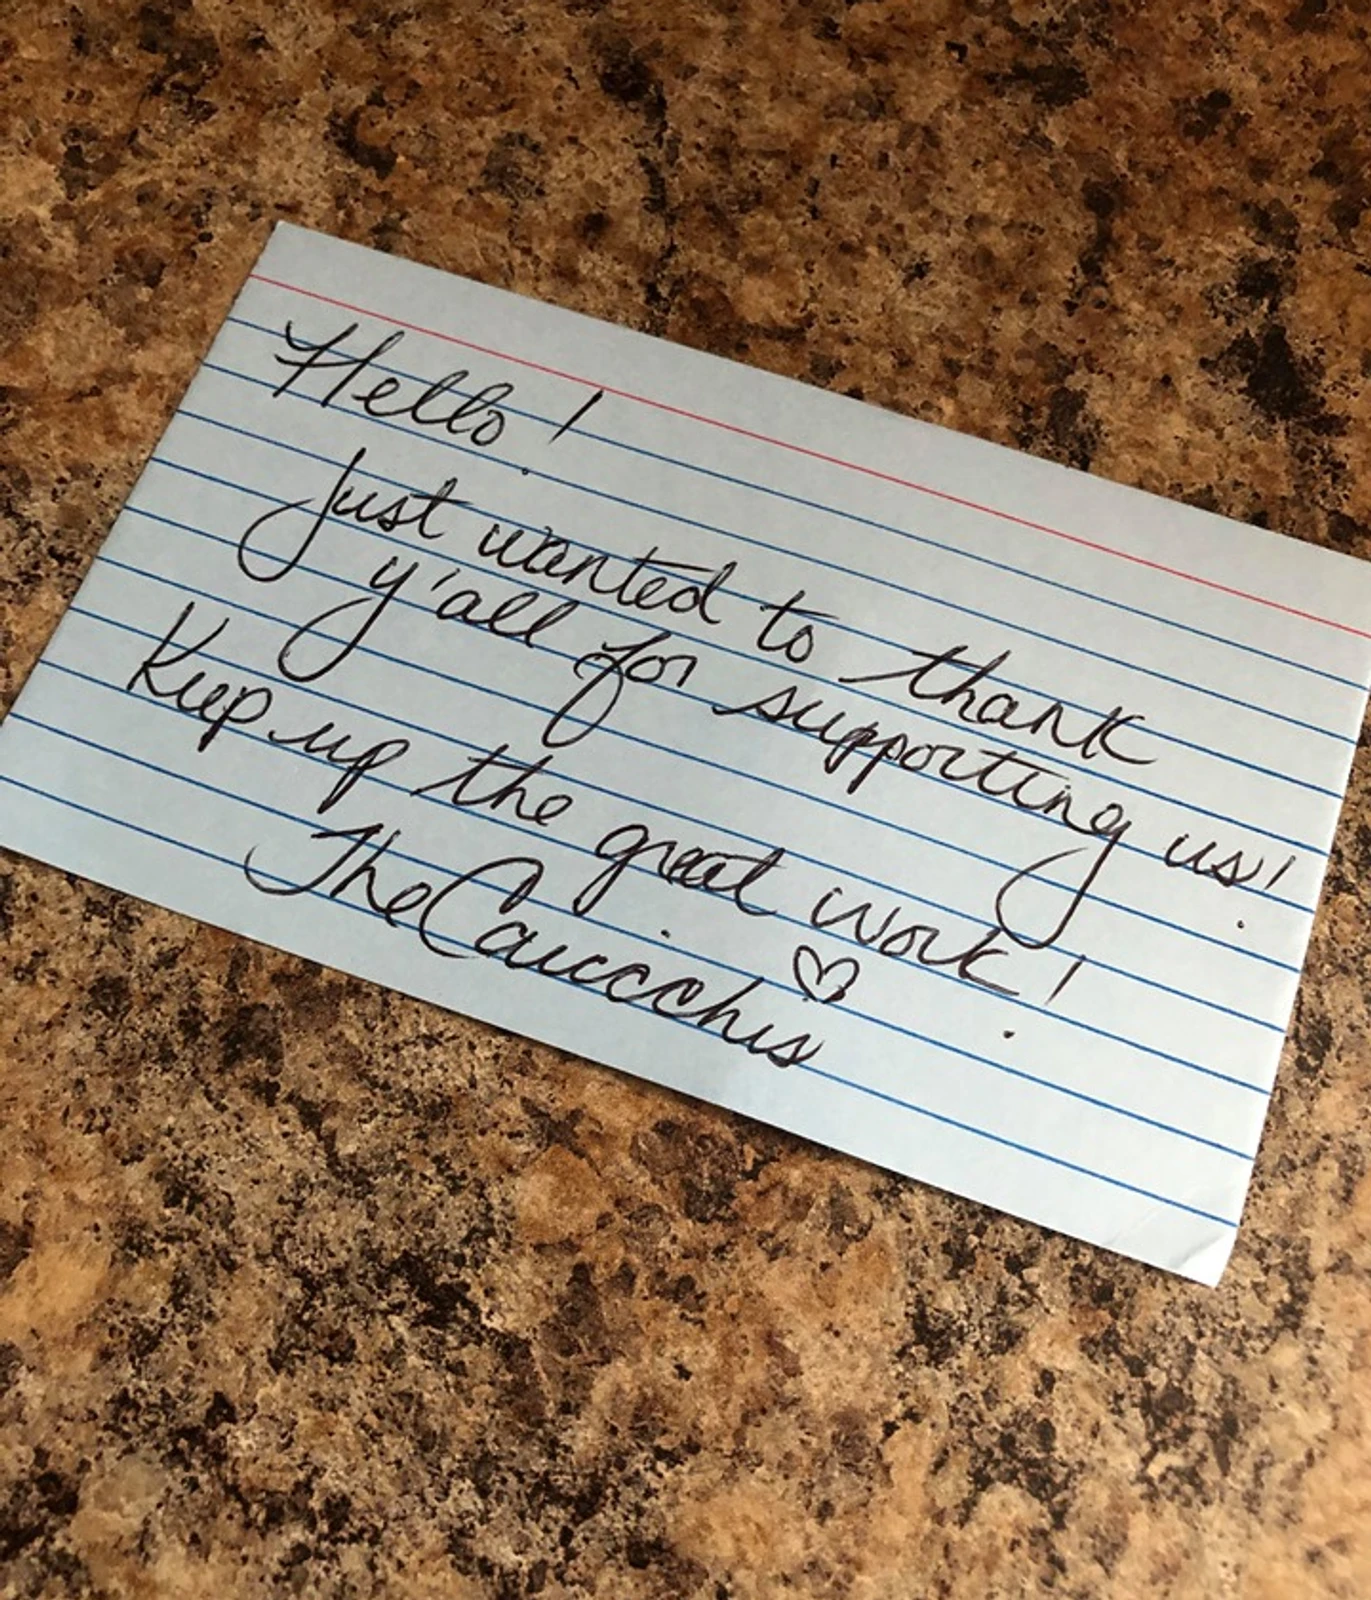 Hello!
Just wanted to thank
y'all for supporting us!
Keep up the great work!
The